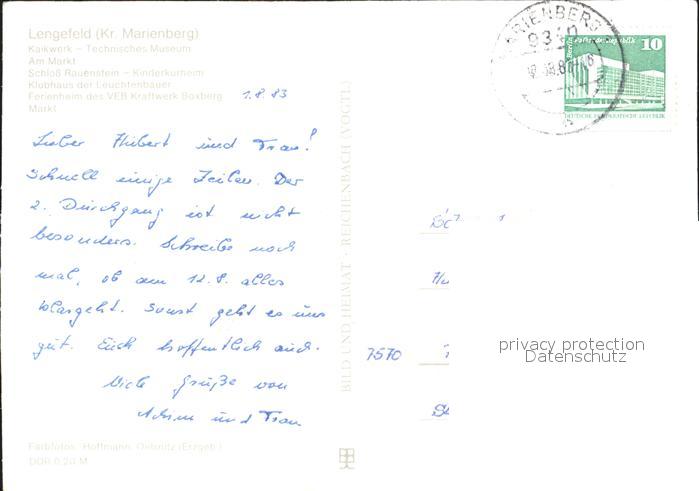 Lengefeld (Kr. Marienberg)
Kalkwerk – Technisches Museum
Am Markt
Schloß Rauenstein – Kinderkurheim
Klubhaus der Leuchtenbauer
Ferienheim des VEB Kraftwerk Boxberg
Markt
1.8.83
Lieber Hubert und Frau!
Schnell einige Zeilen. Der
2. Durchgang ist nicht
besonders. Schreibe noch
mal, ob am 12.8. alles
klargeht. Sonst geht es uns
gut. Euch hoffentlich auch.
Viele Grüße von
Achim und Frau
Farbfotos: Hoffmann, Oelsnitz (Erzgeb.)
DDR 0,20 M
BILD UND HEIMAT · REICHENBACH (VOGTL)
MARIENBERG
10
DEUTSCHE DEMOKRATISCHE REPUBLIK
7570
privacy protection
Datenschutz